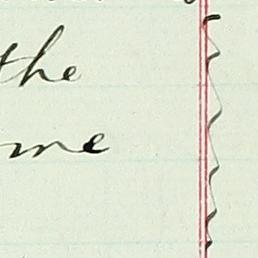 the
me